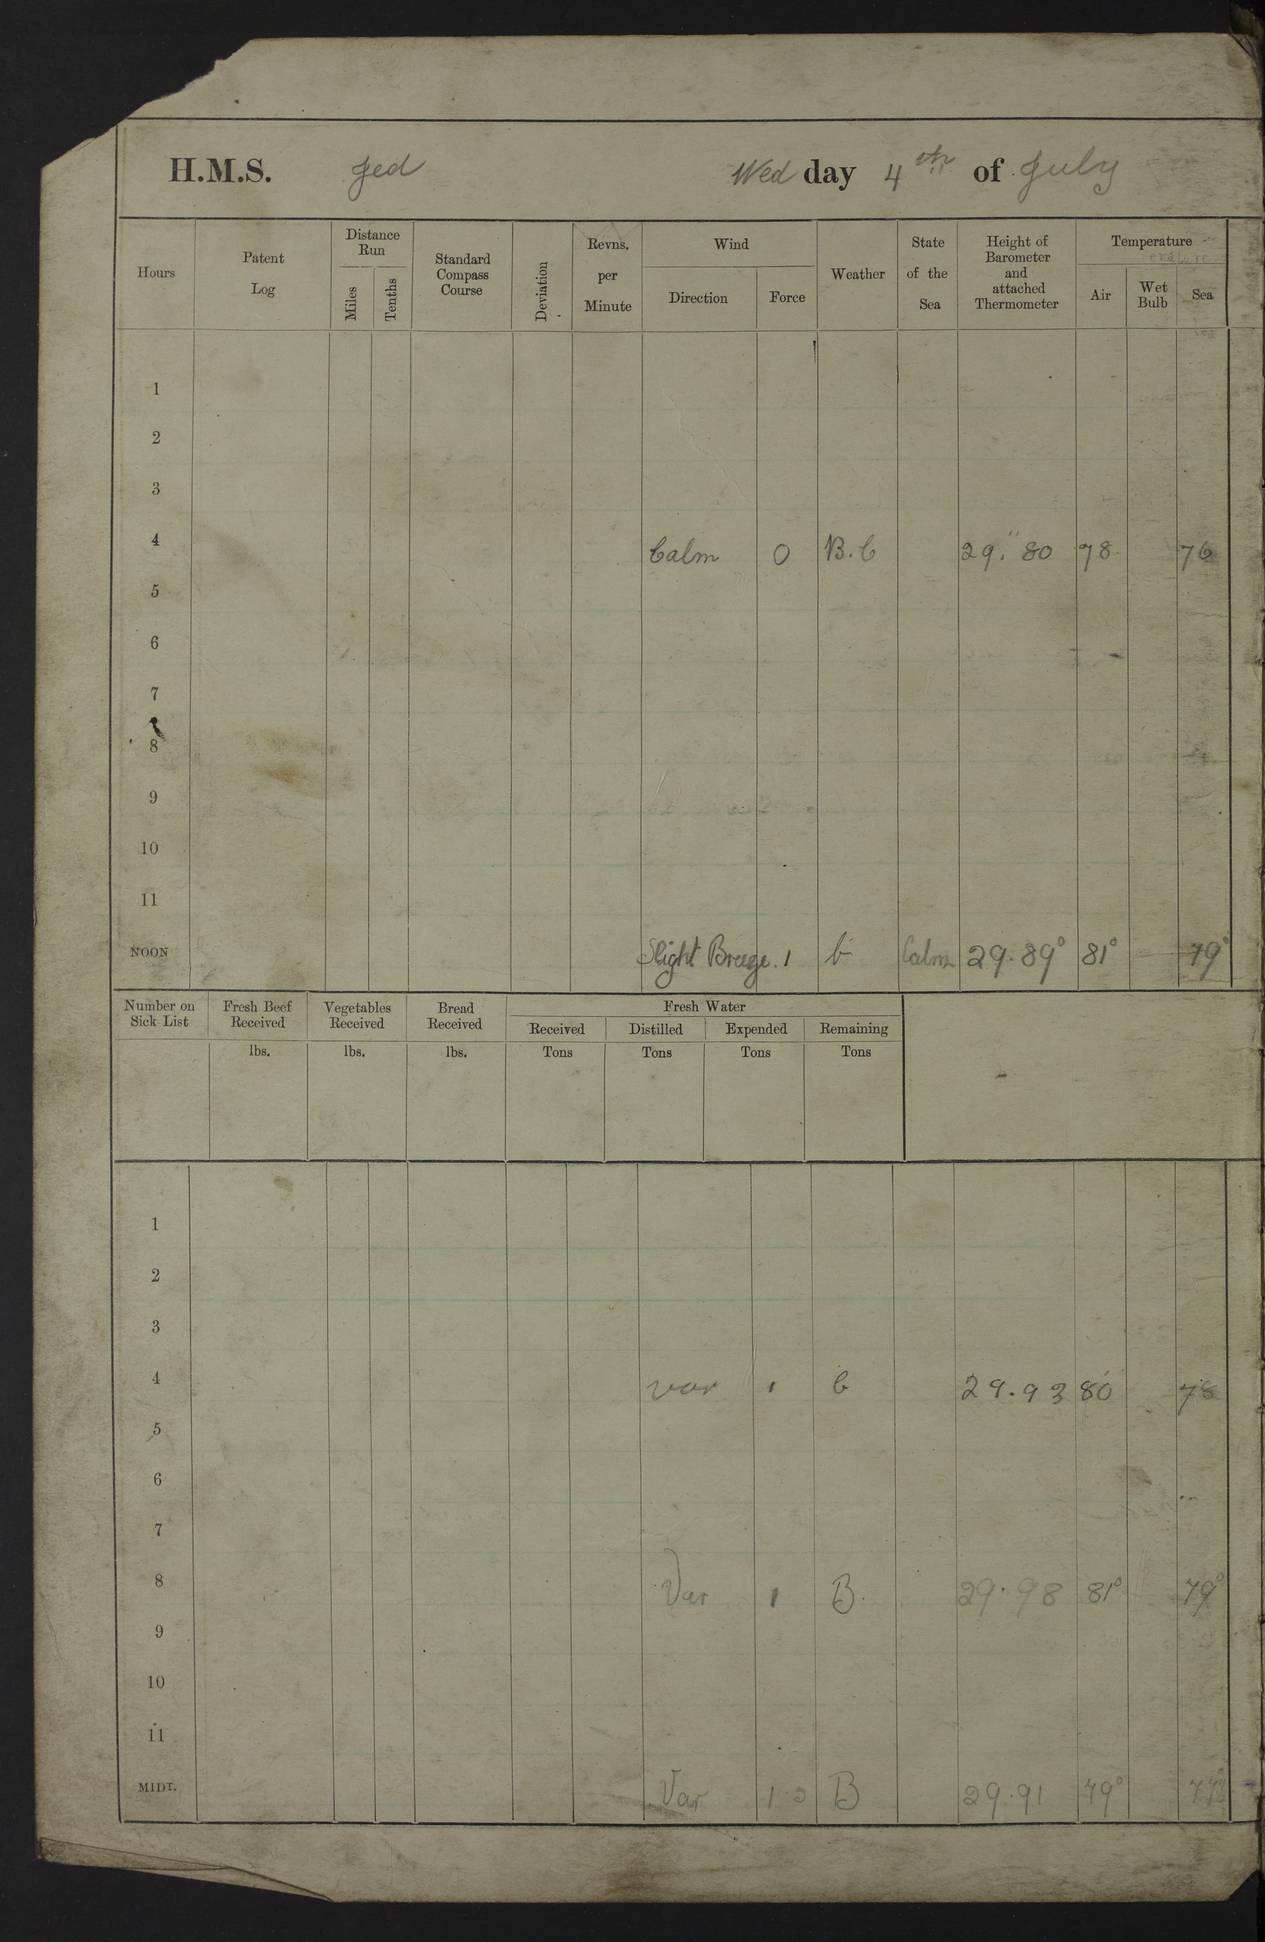 H.M.S. Jed Wed day 4th of July
Hours Patent Log Distance Run Miles Tenths Standard Compass Course Deviation Revns. per Minute Wind Direction Force Weather State of the Sea Height of Barometer and attached Thermometer Temperature Air Wet Bulb Sea
1
2
3
4 Calm 0 B.C 29."80 78 76
5
6
7
8
9
10
11
NOON Slight Breeze. 1 b Calm 29.89° 81° — 79°
Number on Sick List Fresh Beef Received Vegetables Received Bread Received Fresh Water
Received Distilled Expended Remaining
lbs. lbs. lbs. Tons Tons Tons Tons
1
2
3
4 var 1 b 29.93 80 78
5
6
7
8 Var 1 B. 29.98 81° 79°
9
10
11
MIDT. Var 1.2 B 29.91 79°